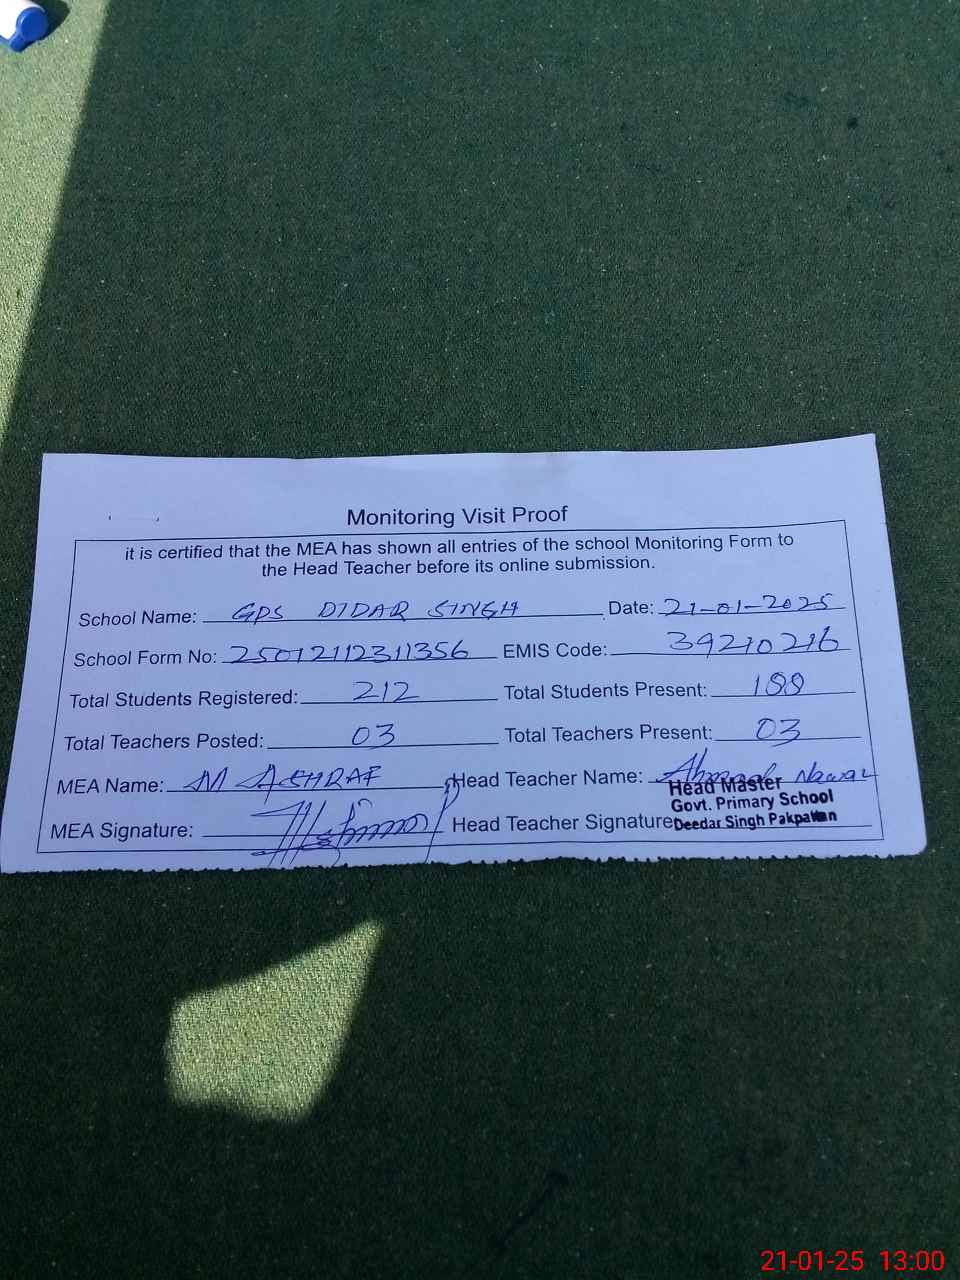 Monitoring Visit Proof
it is certified that the MEA has shown all entries of the school Monitoring Form to
the Head Teacher before its online submission.
School Name: GPS DIDAR SINGH Date: 21-01-2025
School Form No: 25012112311356 EMIS Code: 39210216
Total Students Registered: 212 Total Students Present: 188
Total Teachers Posted: 03 Total Teachers Present: 03
MEA Name: M ASHRAF Head Teacher Name: Ahmad Nawaz
Head Master
Govt. Primary School
MEA Signature: Head Teacher Signature Deedar Singh Pakpattan
21-01-25 13:00